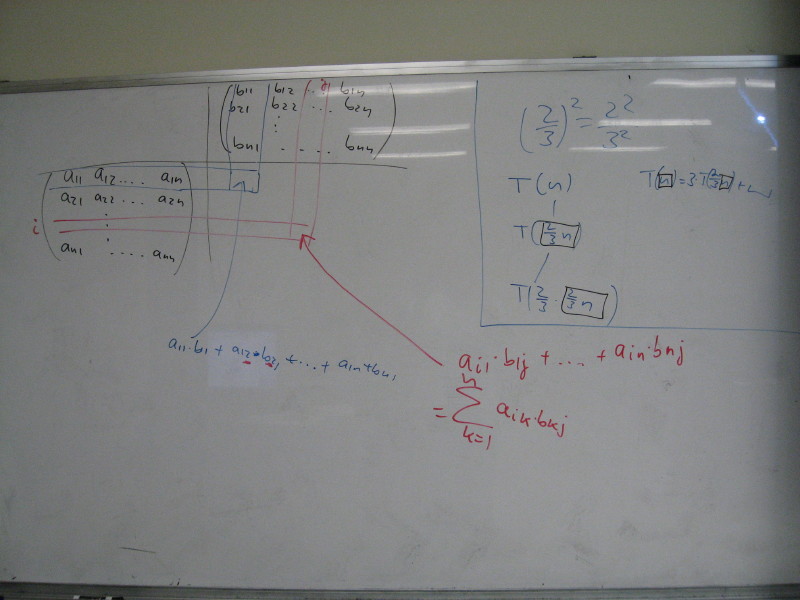 b11 b12 .. j b1n
b21 b22 ... b2n
⋮
bn1 . . . . bnn
a11 a12 .... a1n
a21 a22 ... a2n
⋮
i
an1 ..... ann
a11·b1 + a12·b21 + ... + a1n+bn1
ai1·b1j + .... + ain·bnj
= n∑k=1 aik·bkj
(2/3)² = 2²/3²
T(n)
T(2/3 n)
T(2/3 · 2/3 n)
T(n) = 3T(2/3 n) +